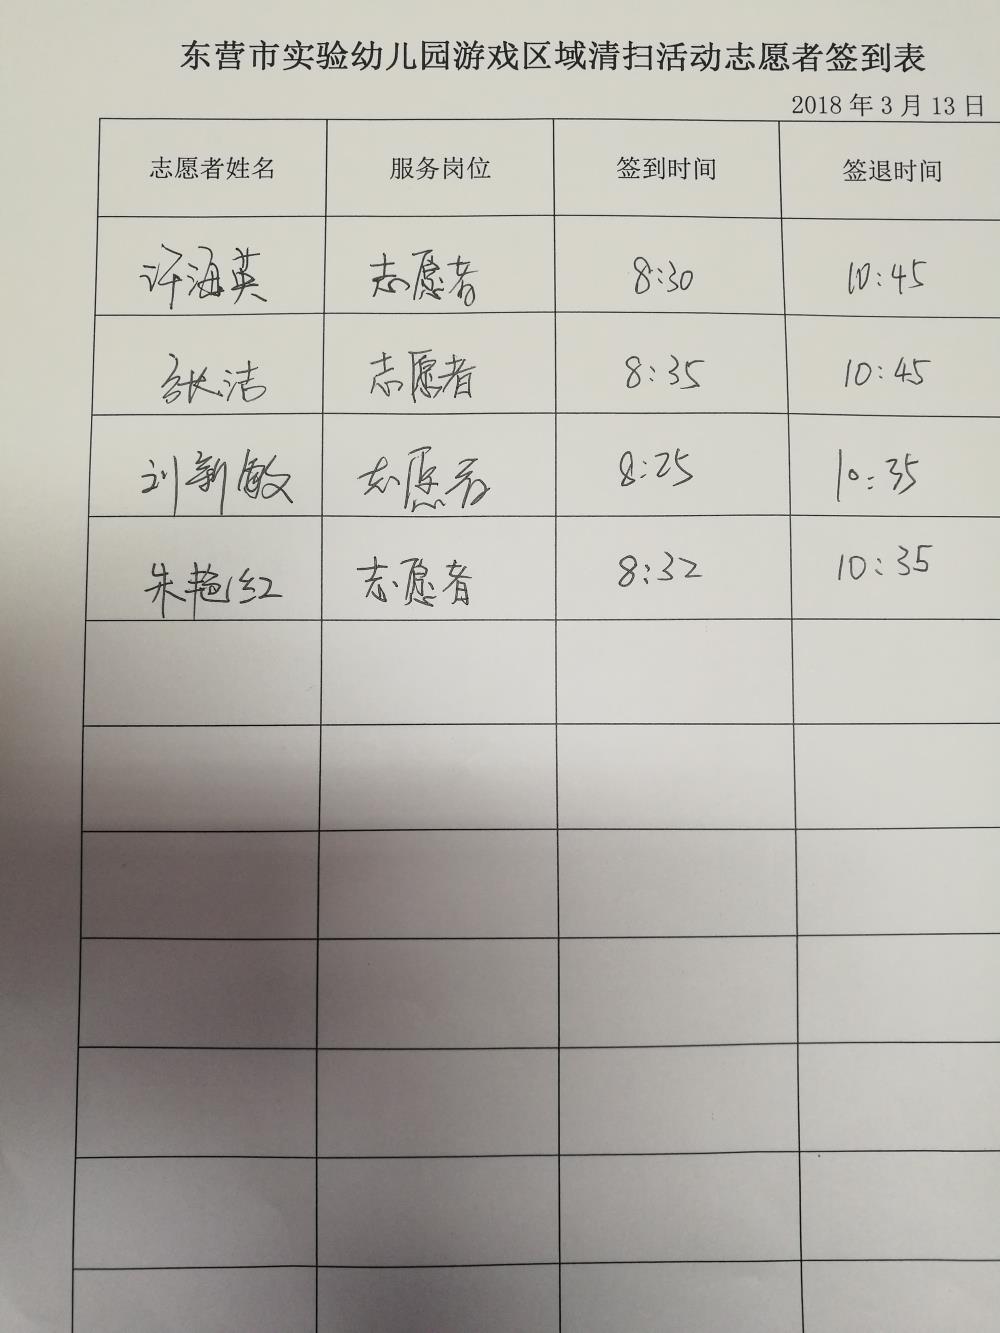 东营市实验幼儿园游戏区域清扫活动志愿者签到表
2018 年 3 月 13 日
志愿者姓名 服务岗位 签到时间 签退时间
许海英 志愿者 8:30 10:45
张洁 志愿者 8:35 10:45
刘新敏 志愿者 8:25 10:35
朱艳红 志愿者 8:32 10:35